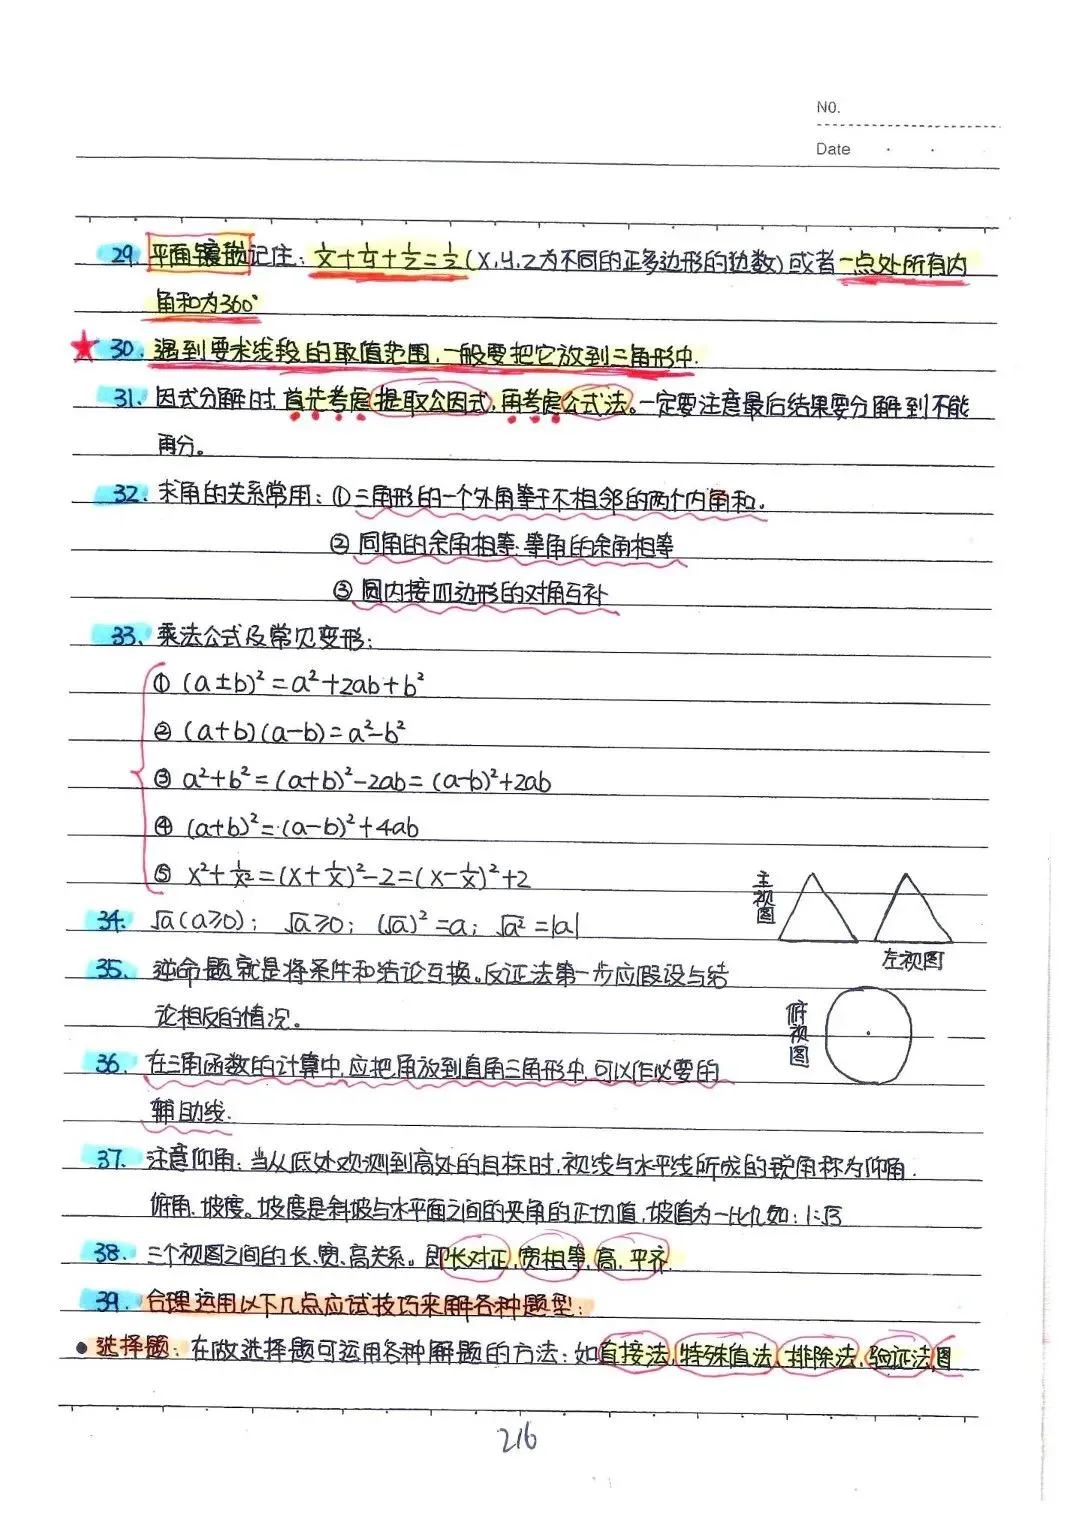 NO.
Date
29. 平面镶嵌记住: 1/x+1/y+1/z=1/2(x,y,z为不同的正多边形的边数)或者一点处所有内
角和为360°
★ 30. 遇到要求线段的取值范围,一般要把它放到三角形中.
31. 因式分解时,首先考虑提取公因式,再考虑公式法。一定要注意最后结果要分解到不能
再分。
32. 求角的关系常用: ①三角形的一个外角等于不相邻的两个内角和。
② 同角的余角相等.等角的余角相等
③ 圆内接四边形的对角互补
33、乘法公式及常见变形:
① (a±b)²=a²+2ab+b²
② (a+b)(a-b)=a²-b²
③ a²+b²=(a+b)²-2ab=(a-b)²+2ab
④ (a+b)²=(a-b)²+4ab
⑤ x²+1/x²=(x+1/x)²-2=(x-1/x)²+2
主视图
左视图
34. √a(a≥0); √a≥0; (√a)²=a; √a²=|a|
35. 逆命题就是将条件和结论互换。反证法第一步应假设与结
论相反的情况。
俯视图
36. 在三角函数的计算中,应把角放到直角三角形中,可以作必要的
辅助线.
37. 注意仰角:当从低处观测到高处的目标时,视线与水平线所成的锐角称为仰角.
俯角、坡度。坡度是斜坡与水平面之间的夹角的正切值,坡值为一比几如: 1:√3
38. 三个视图之间的长、宽、高关系。即长对正,宽相等,高、平齐.
39. 合理运用以下几点应试技巧来解各种题型:
● 选择题: 在做选择题可运用各种解题的方法:如直接法,特殊值法,排除法,验证法,图
216